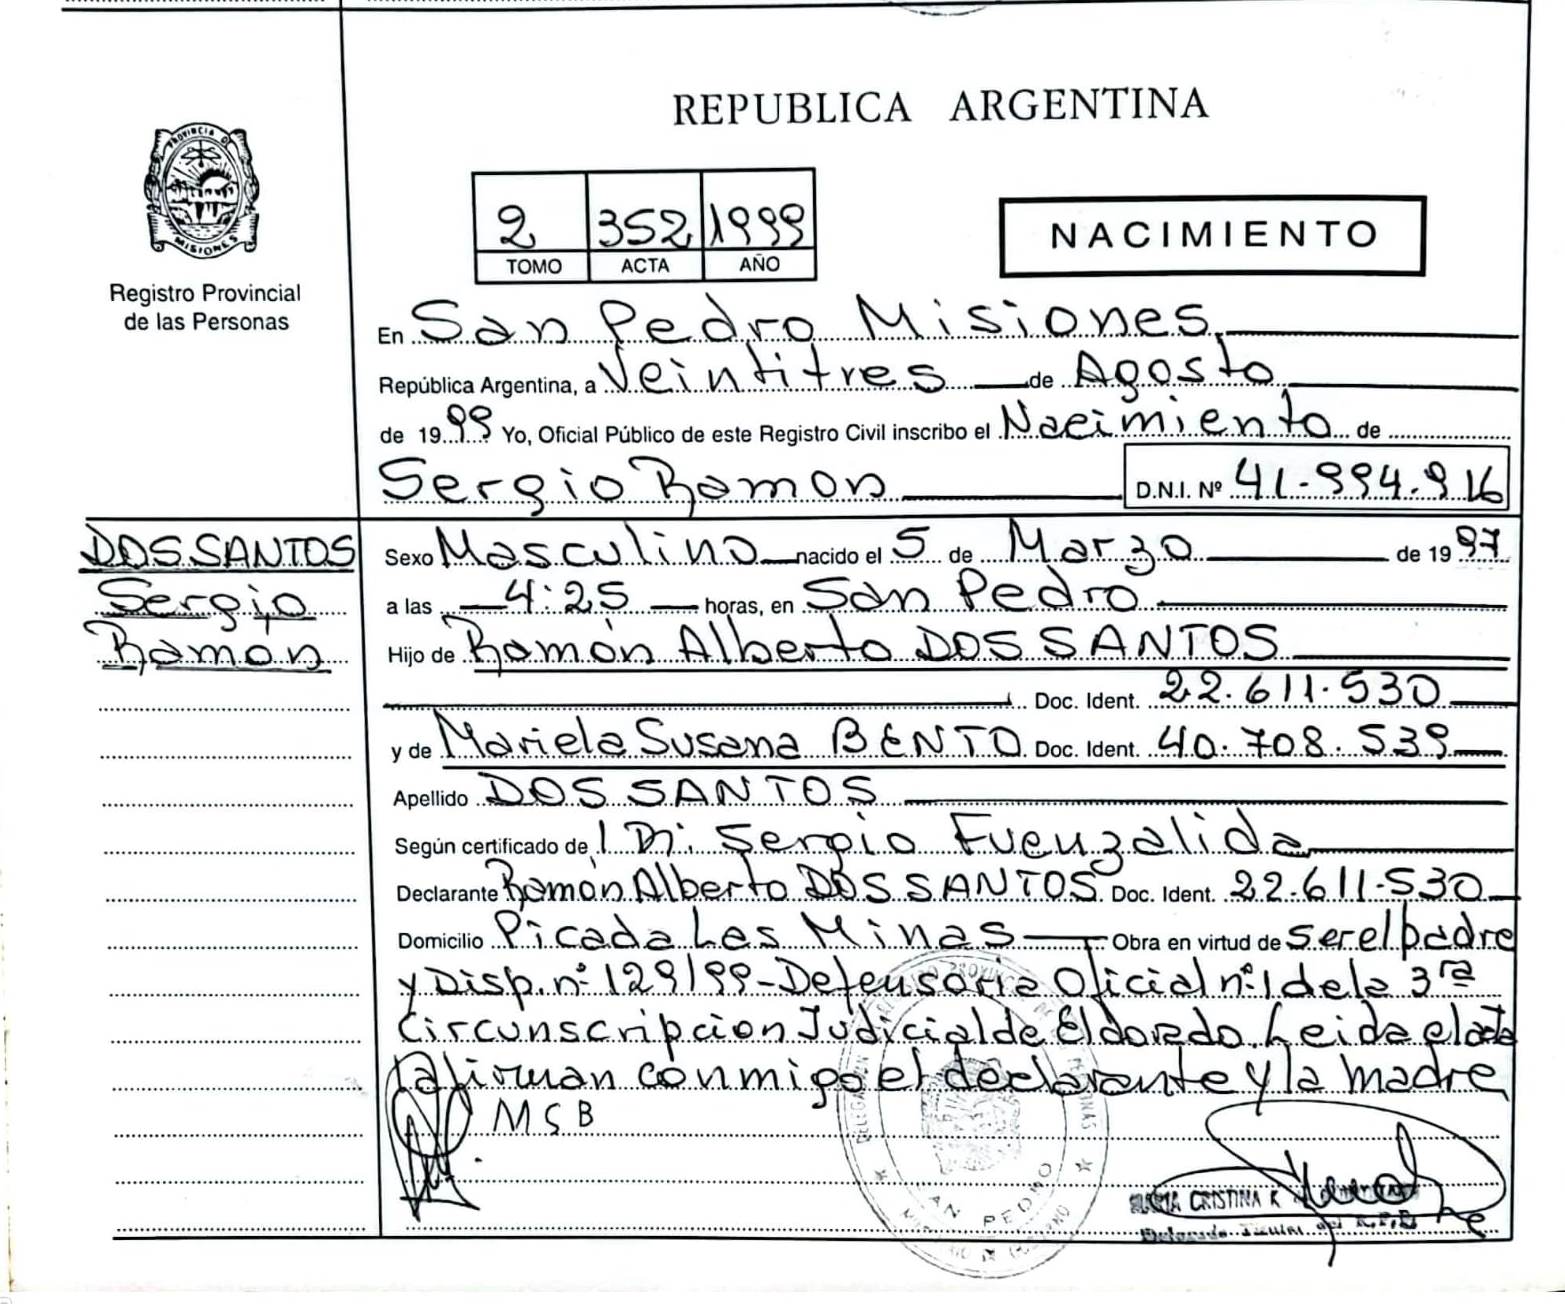 REPUBLICA ARGENTINA
PROVINCIA D MISIONES
Registro Provincial
de las Personas
2 352 1999
TOMO ACTA AÑO
NACIMIENTO
En San Pedro Misiones
República Argentina, a Veintitres de Agosto
de 1999 Yo, Oficial Público de este Registro Civil inscribo el Nacimiento de
Sergio Ramon D.N.I. Nº 41-994.916
DOS SANTOS
Sergio
Ramón
Sexo Masculino nacido el 5 de Marzo de 1997
a las 4:25 horas, en San Pedro
Hijo de Ramón Alberto DOS SANTOS
Doc. Ident. 22.611.530
y de Mariela Susana BENTO Doc. Ident. 40.708.539
Apellido DOS SANTOS
Según certificado de Dr. Sergio Fuenzalida
Declarante Ramón Alberto DOS SANTOS Doc. Ident. 22.611.530
Domicilio Picada Las Minas Obra en virtud de ser el padre
y Disp. nº 129/99-Defensoria Oficial nº 1 de la 3ra
Circunscripcion Judicial de Eldorado. Leida el acta
la firman conmigo el declarante y la madre
MSB
SAN PEDRO
MARIA CRISTINA